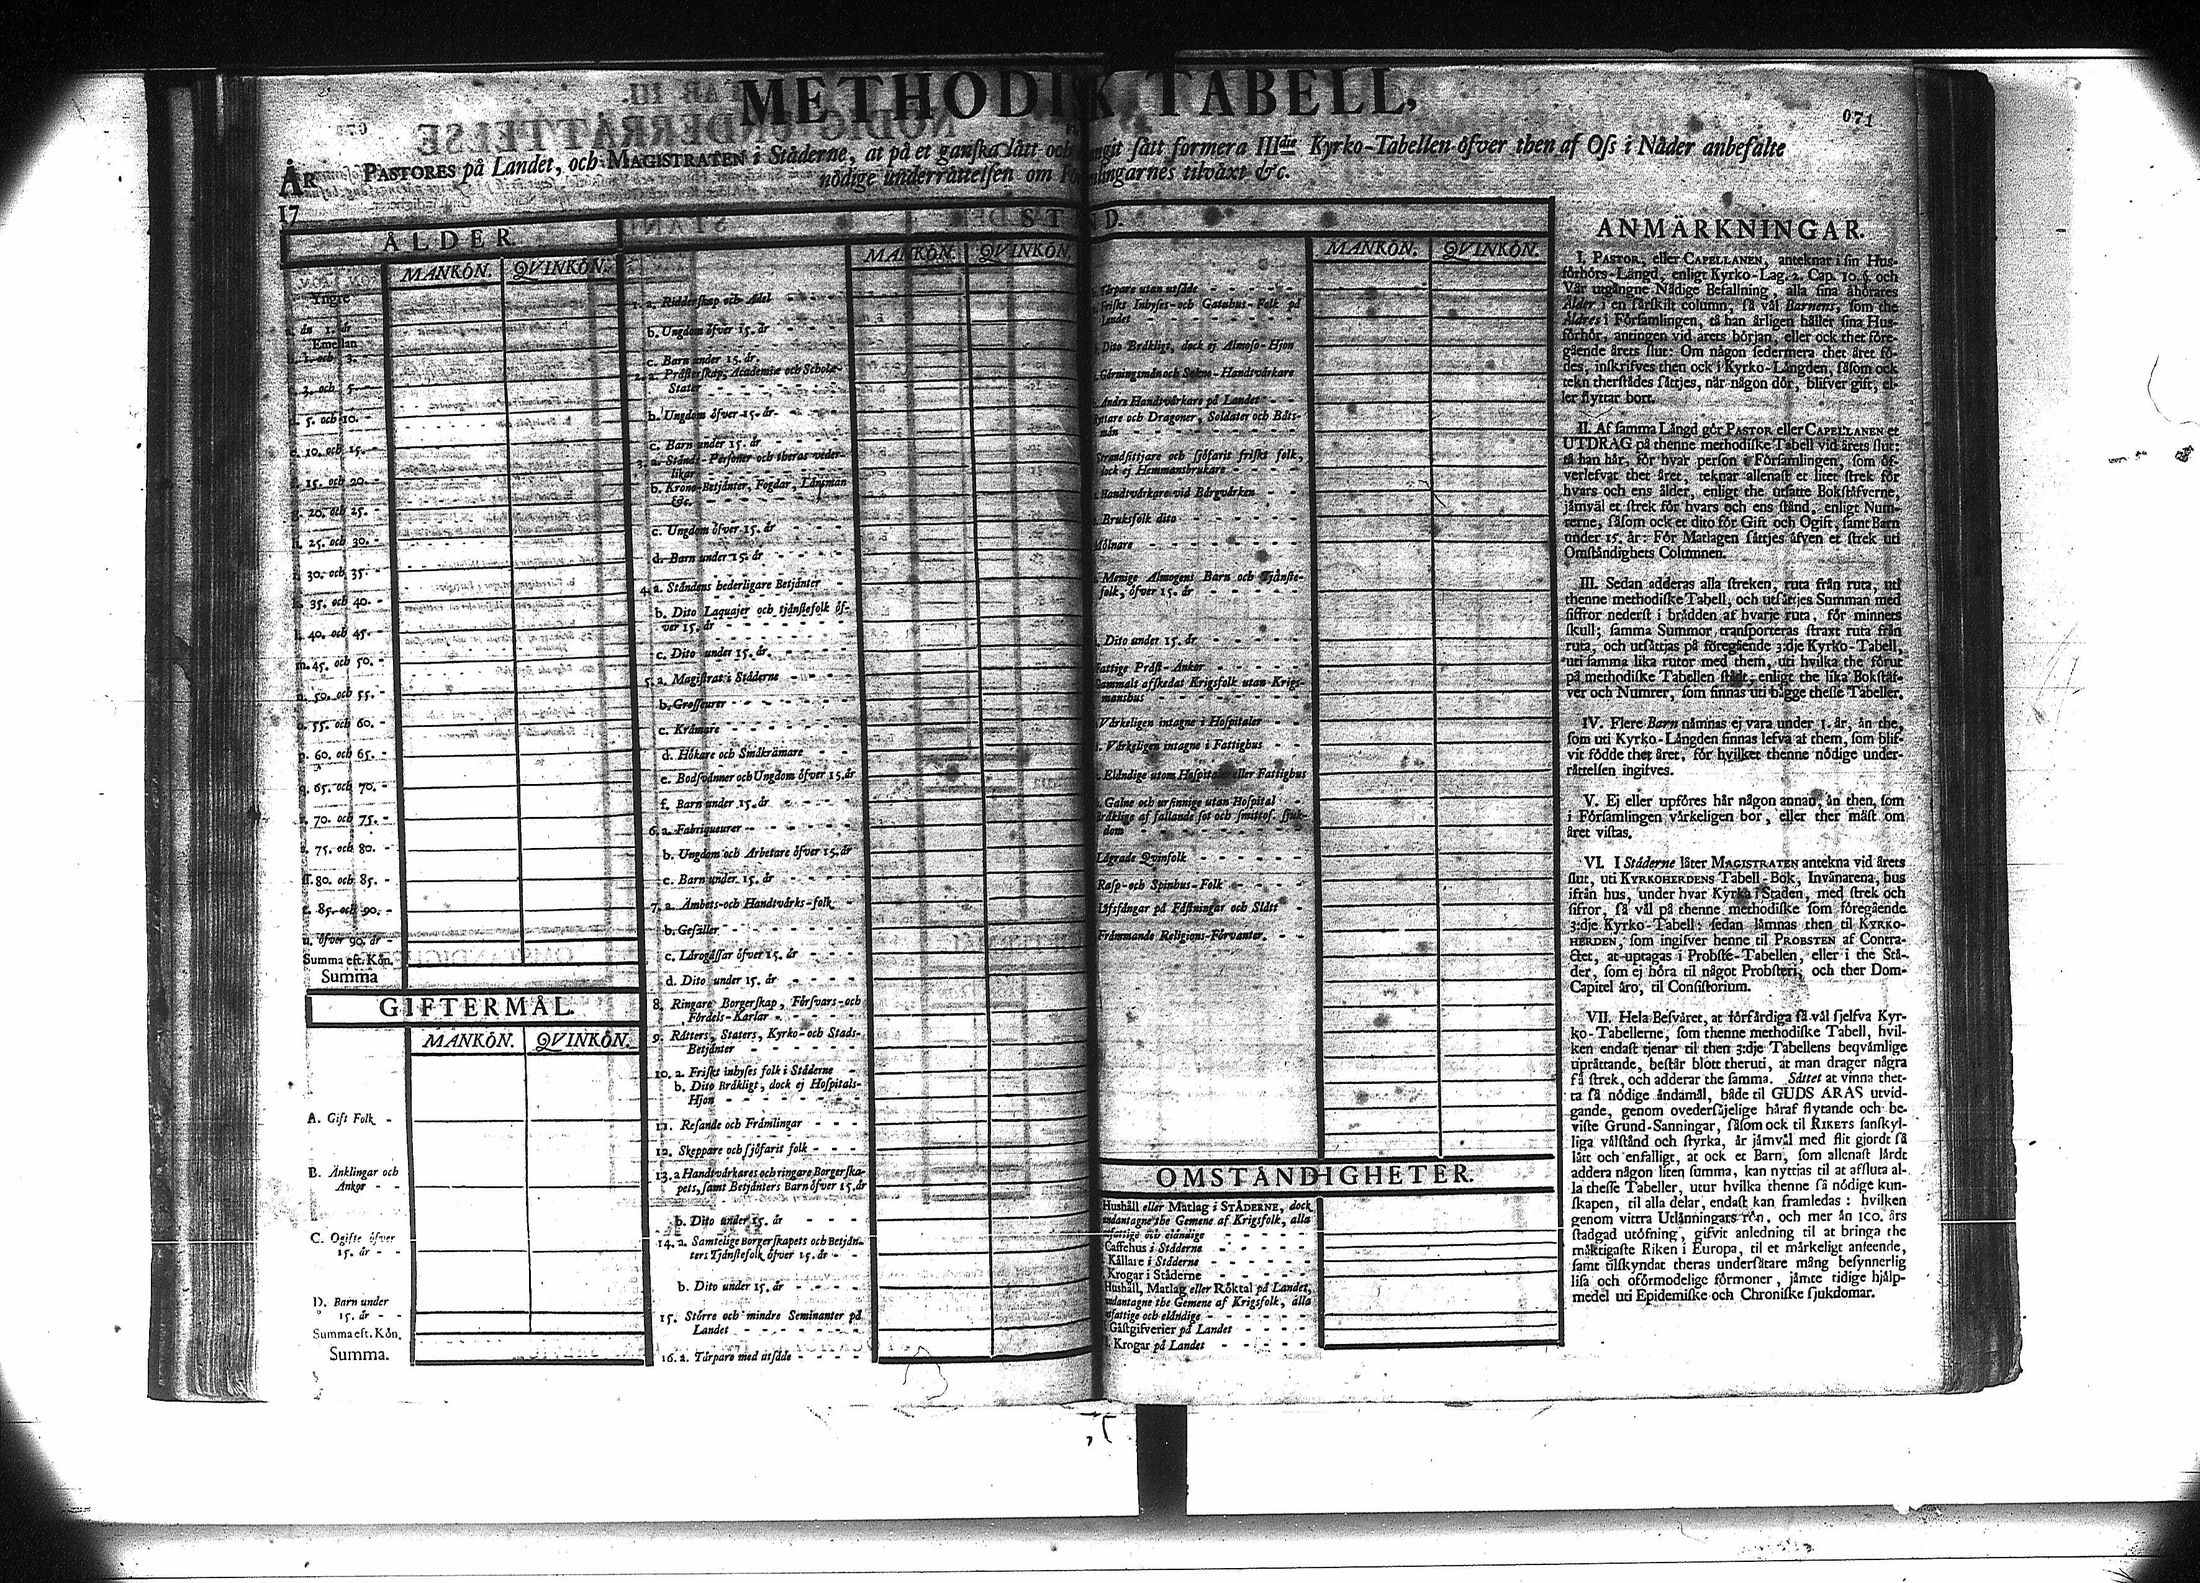 METHODISK TABELL,
071
PASTORES på Landet, och MAGISTRATEN i Städerne, at på et ganska lätt och sätt formera IIIdie Kyrko-Tabellen öfver then af Oss i Nåder anbefalte
nödige underrättelsen om Församlingarnes tilväxt &c.
ÅR
17
ÅLDER.
MANKÖN. QVINKÖN.
Yngre
än 1. år
Emellan
1. och 3.
3. och 5.
5. och 10. -
10. och 15. -
15. och 20. -
20. och 25. -
25. och 30. -
30. och 35. -
35. och 40. -
40. och 45. -
m. 45. och 50. -
50. och 55. -
55. och 60. -
60. och 65. -
65. och 70. -
70. och 75. -
75. och 80. -
ss. 80. och 85. -
85. och 90. -
u. öfver 90. år -
Summa eft. Kön.
Summa
GIFTERMÅL.
MANKÖN. QVINKÖN.
A. Gift Folk - -
B. Änklingar och
Änkor - -
C. Ogifte öfver
15. år - -
D. Barn under
15. år - -
Summa eft. Kön.
Summa.
STÅND.
MANKÖN. QVINKÖN.
1. a. Ridderskap och Adel - - -
b. Ungdom öfver 15. år - - -
c. Barn under 15. år.
2. a. Prästerskap, Academiæ och Scholæ-
Stater - - - -
b. Ungdom öfver 15. år - - -
c. Barn under 15. år - - - -
3. a. Stånds-Personer och theras veder-
likar
b. Krono-Betjänter, Fogdar, Länsman
&c.
c. Ungdom öfver 15. år - - -
d. Barn under 15. år - - -
4. a. Ståndens hederligare Betjänter -
b. Dito Laquajer och tjänstefolk öf-
ver 15. år - - - -
c. Dito under 15. år. - - -
5. a. Magistrat i Städerne - - -
b. Grosseurer - - - -
c. Krämare - - - -
d. Hökare och Småkrämare - -
e. Bodsvänner och Ungdom öfver 15. år
f. Barn under 15. år - - -
6. a. Fabriqueurer - - - -
b. Ungdom och Arbetare öfver 15. år
c. Barn under 15. år - - -
7. a. Ämbets- och Handtvärks-folk -
b. Gesäller - - - -
c. Lärogåssar öfver 15. år - - -
d. Dito under 15. år - - -
8. Ringare Borgerskap, Försvars- och
Fördels-Karlar - - - -
9. Rätters, Staters, Kyrko- och Stads-
Betjänter - - - -
10. a. Friskt inhyses folk i Städerne -
b. Dito Bräkligt, dock ej Hospitals-
Hjon - - - -
11. Resande och Främlingar - - -
12. Skeppare och sjöfarit folk - - -
13. a Handtvärkares och ringare Borgerska-
pets, samt Betjänters Barn öfver 15. år
b. Dito under 15. år - - -
14. a. Samtelige Borgerskapets och Betjän-
ters Tjänstefolk öfver 15. år - -
b. Dito under 15. år - - -
15. Större och mindre Seminanter på
Landet - - - -
16. a. Tärpare med utsäde - - - -
MANKÖN. QVINKÖN.
Tärpare utan utsäde - - - -
Friskt Inhyses- och Gatuhus-Folk på
Landet - - - -
Dito Bräkligt, dock ej Almoso-Hjon
Gärningsmän och Sokne-Handtvärkare
Andra Handtvärkare på Landet - -
Ryttare och Dragoner, Soldater och Båts-
män - - - -
Strandsittjare och sjöfarit friskt folk,
dock ej Hemmansbrukare - - -
Handtvärkare vid Bärgvärken - -
Bruksfolk dito - - - -
Mölnare - - - -
Menige Almogens Barn och Tjänste-
folk, öfver 15. år - - -
Dito under 15. år - - - -
Fattige Präst-Änkor - - - -
Gammalt afskedat Krigsfolk utan Krigs-
manshus - - - -
Värkeligen intagne i Hospitaler - -
Värkeligen intagne i Fattighus - -
Eländige utom Hospitaler eller Fattighus
Galne och ursinnige utan Hospital -
Bräklige af fallande sot och smittos. sjuk-
dom - - - -
Lägrade Qvinfolk - - - -
Rasp- och Spinhus-Folk - - - -
Lifsfångar på Fästningar och Slått -
Främmande Religions-Förvanter. - -
OMSTÄNDIGHETER.
Hushåll eller Matlag i STÄDERNE, dock
undantagne the Gemene af Krigsfolk, alla
utfattige och eländige
Caffehus i Städerne - - - -
Källare i Städerne - - - -
Krogar i Städerne - - - -
Hushåll, Matlag eller Röktal på Landet,
undantagne the Gemene af Krigsfolk, alla
utfattige och eländige - - - -
Gästgifverier på Landet - - - -
Krogar på Landet - - - -
ANMÄRKNINGAR.
I. PASTOR, eller CAPELLANEN, anteknar i sin Hus-
förhörs-Längd, enligt Kyrko-Lag. 2. Cap. 10. §. och
Vår utgångne Nådige Befallning, alla sina åhörares
Ålder i en särskilt column, så väl Barnens, som the
Äldres i Församlingen, tå han årligen håller sina Hus-
förhör, antingen vid årets början, eller ock thet före-
gående årets slut: Om någon sedermera thet året fö-
des, inskrifves then ock i Kyrko-Längden, såsom ock
tekn therstädes sättjes, när någon dör, blifver gift, el-
ler flyttar bort.
II. Af samma Längd gör PASTOR eller CAPELLANEN et
UTDRAG på thenne methodiske Tabell vid årets slut:
tå han här, för hvar person i Församlingen, som öf-
verlefvat thet året, teknar allenast et litet strek för
hvars och ens ålder, enligt the utsatte Bokstäfverne,
jämväl et strek för hvars och ens stånd, enligt Num-
rerne, såsom ock et dito för Gift och Ogift, samt Barn
under 15. år: För Matlagen sättjes äfven et strek uti
Omständighets Columnen.
III. Sedan adderas alla streken, ruta från ruta, uti
thenne methodiske Tabell, och utsättjes Summan med
siffror nederst i brädden af hvarje ruta, för minnets
skull; samma Summor transporteras straxt ruta från
ruta, och utsättjas på föregående 3:dje Kyrko-Tabell,
uti samma lika rutor med them, uti hvilka the förut
på methodiske Tabellen stådt, enligt the lika Bokstäf-
ver och Numrer, som finnas uti bägge thesse Tabeller.
IV. Flere Barn nämnas ej vara under 1. år, än the,
som uti Kyrko-Längden finnas lefva at them, som blif-
vit födde thet året, för hvilket thenne nödige under-
rättelsen ingifves.
V. Ej eller upföres här någon annan, än then, som
i Församlingen värkeligen bor, eller ther mäst om
året vistas.
VI. I Städerne låter MAGISTRATEN antekna vid årets
slut, uti KYRKOHERDENS Tabell-Bok, Invånarena, hus
ifrån hus, under hvar Kyrka i Staden, med strek och
sifror, så väl på thenne methodiske som föregående
3:dje Kyrko-Tabell: sedan lämnas then til KYRKO-
HERDEN, som ingifver henne til PROBSTEN af Contra-
ctet, at uptagas i Probste-Tabellen, eller i the Stä-
der, som ej höra til något Probsteri, och ther Dom-
Capitel äro, til Consistorium.
VII. Hela Besväret, at förfärdiga så väl sjelfva Kyr-
ko-Tabellerne, som thenne methodiske Tabell, hvil-
ken endast tjenar til then 3:dje Tabellens beqvämlige
uprättande, består blott theruti, at man drager några
få strek, och adderar the samma. Sättet at vinna thet-
ta så nödige ändamål, både til GUDS ÄRAS utvid-
gande, genom ovedersäjelige häraf flytande och be-
viste Grund-Sanningar, såsom ock til RIKETS sanskyl-
liga välstånd och styrka, är jämväl med flit gjordt så
lätt och enfalligt, at ock et Barn, som allenast lärdt
addera någon liten summa, kan nyttjas til at afsluta al-
la thesse Tabeller, utur hvilka thenne så nödige kun-
skapen, til alla delar, endast kan framledas: hvilken
genom vittra Utlänningars rön, och mer än 100. års
stadgad utöfning, gifvit anledning til at bringa the
mäktigaste Riken i Europa, til et märkeligt anseende,
samt tilskyndat theras undersåtare mång besynnerlig
lisa och oförmodelige förmoner, jämte tidige hjälp-
medel uti Epidemiske och Chroniske sjukdomar.